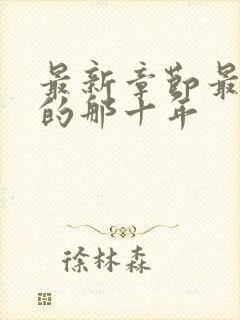 最新章节最
的那十年
徐林森